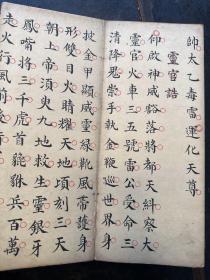 帥太乙毒雷運化天尊
靈官誥
仰啟神威豁落將都天糾察大
靈官火車三五號雷公受命三
清降鬼祟手執金鞭巡世界身
披金甲顯威靈綠靴風帶護身
形雙目火睛耀天地頃刻三天
朝上帝須臾九地救生靈銀牙
鳳嘴將三千虎首貔貅兵百萬
走火行風前